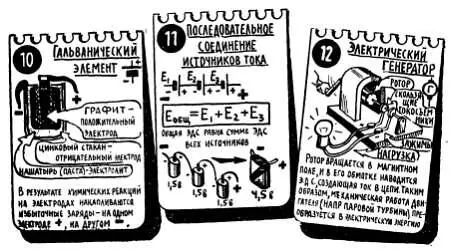 10
ГАЛЬВАНИЧЕСКИЙ
ЭЛЕМЕНТ
- +
ГРАФИТ-
ПОЛОЖИТЕЛЬНЫЙ
ЭЛЕКТРОД
ЦИНКОВЫЙ СТАКАН-
ОТРИЦАТЕЛЬНЫЙ ЭЛЕКТРОД
НАШАТЫРЬ (ПАСТА)-ЭЛЕКТРОЛИТ
В РЕЗУЛЬТАТЕ ХИМИЧЕСКИХ РЕАКЦИЙ
НА ЭЛЕКТРОДАХ НАКАПЛИВАЮТСЯ
ИЗБЫТОЧНЫЕ ЗАРЯДЫ-НА ОДНОМ
ЭЛЕКТРОДЕ +, НА ДРУГОМ -.
11
ПОСЛЕДОВАТЕЛЬНОЕ
СОЕДИНЕНИЕ
ИСТОЧНИКОВ ТОКА
E1 E2 E3
- +
Eобщ=E1+E2+E3
ОБЩАЯ ЭДС РАВНА СУММЕ ЭДС
ВСЕХ ИСТОЧНИКОВ
1,5в 1,5в 1,5в 4,5в
12
ЭЛЕКТРИЧЕСКИЙ
ГЕНЕРАТОР
Г
РОТОР
СКОЛЬЗЯ-
ЩИЕ
ТОКОСЪЕМ-
НИКИ
ЗАЖИМЫ
НАГРУЗКА
РОТОР ВРАЩАЕТСЯ В МАГНИТНОМ
ПОЛЕ, И В ЕГО ОБМОТКЕ НАВОДИТСЯ
ЭДС, СОЗДАЮЩАЯ ТОК В ЦЕПИ. ТАКИМ
ОБРАЗОМ, МЕХАНИЧЕСКАЯ РАБОТА ДВИ-
ГАТЕЛЯ (НАПР ПАРОВОЙ ТУРБИНЫ) ПРЕ-
ОБРАЗУЕТСЯ В ЭЛЕКТРИЧЕСКУЮ ЭНЕРГИЮ